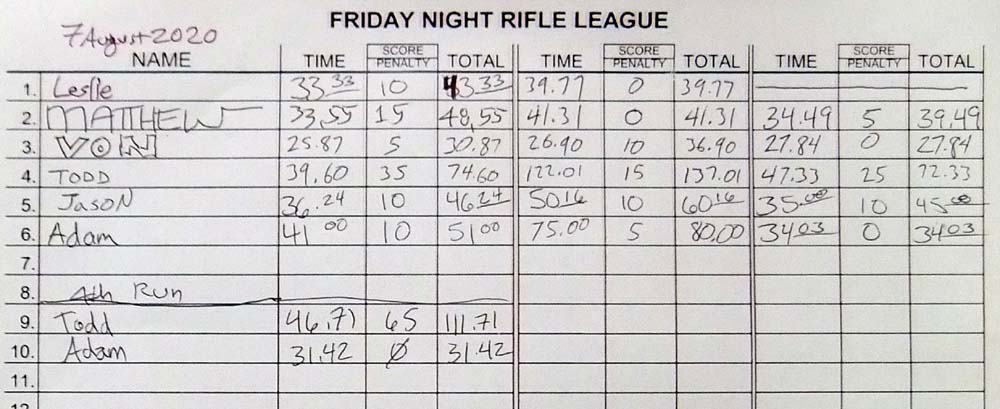 FRIDAY NIGHT RIFLE LEAGUE
7 August 2020
NAME TIME SCORE PENALTY TOTAL TIME SCORE PENALTY TOTAL TIME SCORE PENALTY TOTAL
1. Leslie 33.33 10 43.33 39.77 0 39.77
2. MATTHEW 33.55 15 48.55 41.31 0 41.31 34.49 5 39.49
3. VON 25.87 5 30.87 26.90 10 36.90 27.84 0 27.84
4. TODD 39.60 35 74.60 122.01 15 137.01 47.33 25 72.33
5. JASON 36.24 10 46 24 50 16 10 60 16 35.00 10 45 00
6. Adam 41 00 10 51 00 75.00 5 80.00 34 03 0 34 03
7.
8. 4th Run
9. Todd 46.71 65 111.71
10. Adam 31.42 Ø 31.42
11.
12.